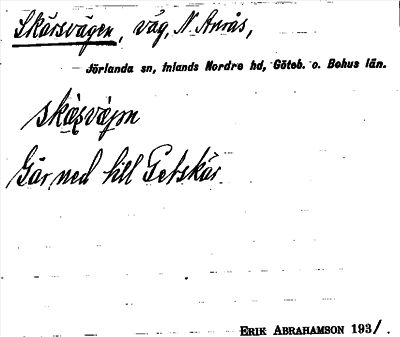 Skärsvägen, väg, N. Anrås,
Jörlanda sn, Inlands Nordre hd, Göteb. o. Bohus län.
skä̀ṣvàjən
Går ned till Getskär.
ERIK ABRAHAMSON 193/.